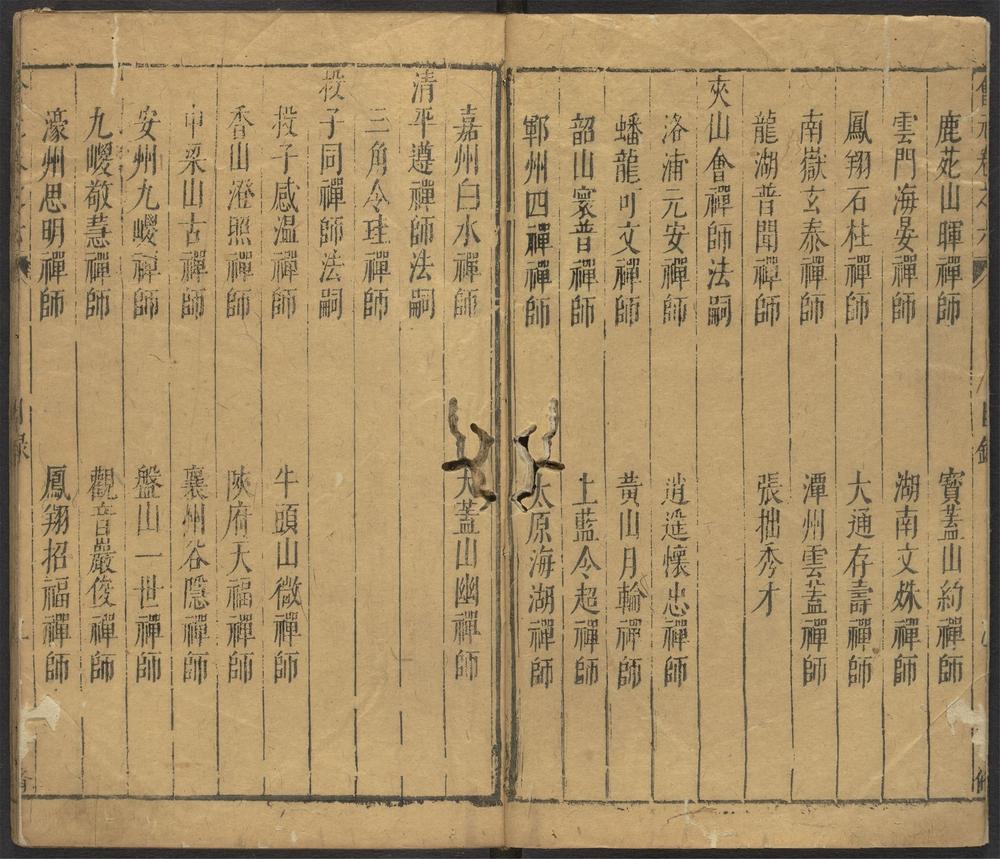 會元卷之六
目錄
鹿苑山暉禪師 寶蓋山約禪師
雲門海晏禪師 湖南文殊禪師
鳳翔石柱禪師 大通存壽禪師
南嶽玄泰禪師 潭州雲蓋禪師
龍湖普聞禪師 張拙秀才
夾山會禪師法嗣
洛浦元安禪師 逍遙懷忠禪師
蟠龍可文禪師 黃山月輪禪師
韶山寰普禪師 上藍令超禪師
鄆州四禪禪師 太原海湖禪師
嘉州白水禪師 天蓋山幽禪師
清平遵禪師法嗣
三角令珪禪師
投子同禪師法嗣
投子感溫禪師 牛頭山微禪師
香山澄照禪師 陝府天福禪師
中梁山古禪師 襄州谷隱禪師
安州九嵕禪師 盤山二世禪師
九嵕敬慧禪師 觀音巖俊禪師
濠州思明禪師 鳳翔招福禪師
目錄